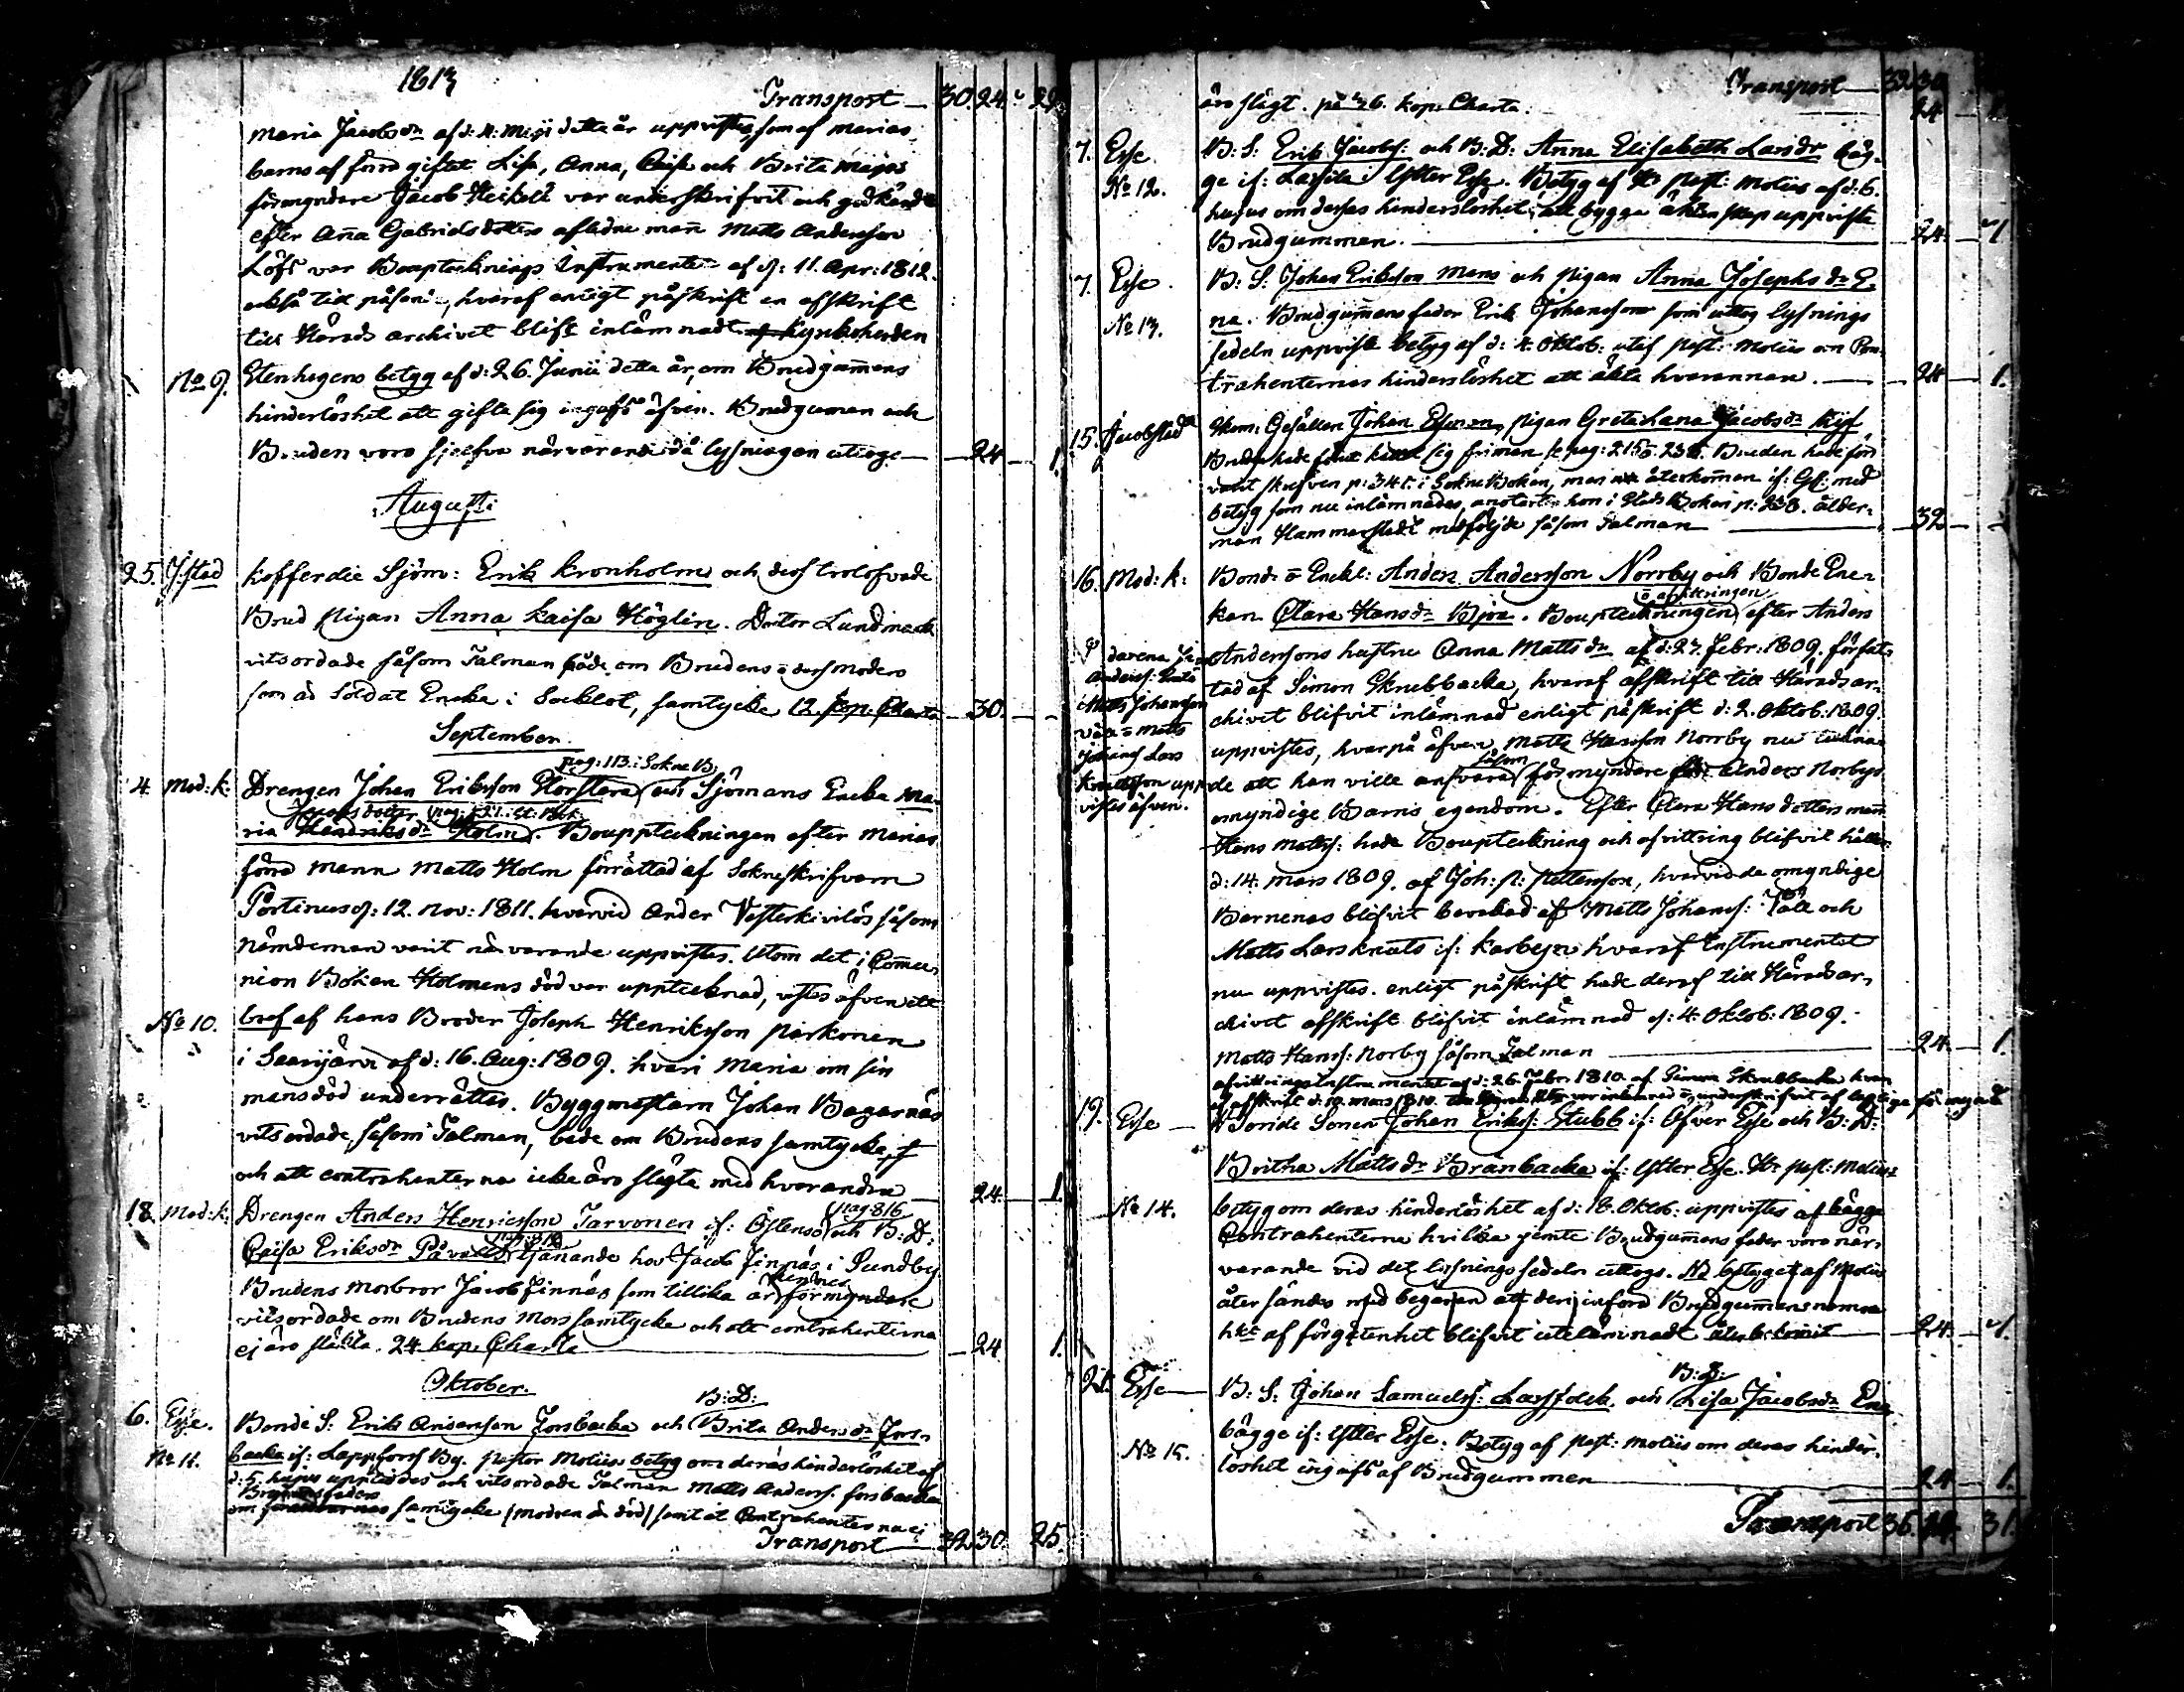 1813
Transport — 30. 24. 22
Maria Jacobsdr af d: 4: Maji detta år uppvistes, som af Marias
barns af förra giftet Lisa, Anna, Caisa och Brita Majas
förmyndare Jacob Heikelt var underskrifvit och godkändt
efter Anna Gabriels dotters aflidne man Matts Anderson
Löfs var Boupptecknings Instrumentet af d: 11. Apr: 1812.
också till påseende, hvaraf enligt påskrift en afskrift
till Härads archivet blifv inlämnadt af Kyrkoherden
No 9. Stenhagens betyg af d: 26. Junii detta år, om Brudgummens
hinderlöshet att gifta sig ingafs äfven. Brudgumen och
Bruden voro sjelfva närvarande då lysningen uttogs — 24 — 1.
Augusti
25. J:stad Kofferdie Sjöm: Erik Kronholm och dess trolofvade
Brud pigan Anna Kaisa Höglin. Doctor Lundmark
vitsordade såsom Talman både om Brudens o dess Moders
som är Soldat Encka i Socklot, samtycke 12. kop. Charta — 30. —
September
pag: 113. i Sokne B.
4. Mod: k: Drengen Johan Eriksson Storstara och Sjömans Encka Ma-
Jacobs dotter
ria Hendriksdr Holm. Bouppteckningen efter Marias
förra mann Matts Holm förrättad af Sokneskrifvarn
Portinus d: 12. Nov: 1811. hvarvid Ander Vesterkivilös såsom
Nämdeman varit närvarande uppvistes. Utom det i Commu-
nion Boken Holmens död var upptecknad, vistes äfven ett
No 10. bref af hans Broder Joseph Henriksson Parkonen
i Saarijärvi af d: 16. Aug: 1809. hvari Maria om sin
mans död underrättes. Byggmästarn Johan Bagarnäs
vitsordade, såsom Talman, både om Brudens samtycke,
och att contrahenterna icke äro slägte med hvarandra — 24. — 1.
pag 816
18. Mod: k: Drengen Anders Henricsson Tarvonen if: Östensö och B: D:
Caisa Eriksdr Påvalls tjänande hos Jacob Finnäs i Sundby
Brudens Morbror Jacob Finnäs som tillika är hennes förmyndare
vitsordade om Brudens Mors samtycke och att contrahenterna
ej äro släkta. 24. kop. Charta — 24 — 1.
Oktober.
B: D:
6. Esse. Bonde S: Erik Anderson Forsbacka och Brita Andersdr Fors-
No 11. backa if: Lappfors By. Pastor Molins betyg om deras hinderlöshet af
d: 5. hujus upptéddes och vitsordade Talman Matts Anders: Forsbacka
Brudgumens faders
om föräldrarnas samtycke /modren är död/ samt at Contrahenterna ej
Transport — 32 30. 25.
Transport — 32 30
äro slägt. på 26. kop. Charta. — 24 — 1.
7. Esse. B: S: Erik Jacobs: och B: D: Anna Elisabeth Larsdr bäg-
No 12. ge if: Lassila i Ytter Esse. Betyg af Hr Past: Molins af d: 6.
hujus om dessas hinderslöshet att bygga äktenskap uppviste
Brudgumman. — 24. — 1.
7. Esse. B: S: Johan Erikson Mans och pigan Anna Josephsdr E-
No 13. na. Brudgumens fader Erik Johansson som uttog lysnings
sedeln uppviste betyg af d: 4. Oktob: utaf past: Molins om Con-
trahenternes hinderslöshet att äkta hvarannan. — 24 — 1.
15. Jacobstad Skom: Gesällen Johan Esman, pigan Greta Lena Jacobsdr Kyf
Bruden hade förut kallat sig friman se pag: 215 o 238. Bruden hade förr
varit skrefven p: 345. i Sokne Boken, men nu återkommen if: Esse med
betyg som nu inlämnades, anoterades hon i Stads Boken p: 238. ålder-
man Hammarstedt medföljde såsom Talman — 32 — 1
16. Mod: k: Bonde o Enckl: Anders Andersson Norrby och Bonde Enc-
o afvittringen
kan Clara Hansdr Bjon. Bouppteckningen efter Anders
Anderssons hustru Anna Mattsdr af d: 27. Febr: 1809. förfat-
tad af Simon Skrubbacka, hvaraf afskrift till Häradsar-
Matts Johansson chivet blifvit inlämnad enligt påskrift d: 2. Oktob: 1809.
uppvistes, hvarpå äfven Matts Hansson Norrby nu teckna-
Johans Lars såsom
Knutsson upp- de att han ville ansvara förmyndare för Anders Norbys
vistes äfven. omyndige Barns egendom. Efter Clara Hans dotters man
Hans Matts: hade Bouppteckning och afvittring blifvit hållen
d: 14. Mars 1809. af Joh: P: Pettersson, hvarvid de omyndige
Barnenas blifvit bevakad af Matts Johans: Påll och
Matts Larsknuts if: Karbyn hvaraf Instrumentet
nu uppvistes. enligt påskrift hade deraf till Häradsar-
chivet afskrift blifvit inlämnad d: 4. Oktob: 1809.
Matts Hans: Norby såsom Talman — 24. — 1.
afvittrings Instrumentet af d: 26. Febr. 1810. af Simon Skrubbacka hvar
af afskrift d: 10. Mars 1810.
19. Esse — Bonde Sonen Johan Eriks: Stubb if: Öfver Esse och B: D:
Britha Mattsdr Brånbacka if: Ytter Esse. Hr past: Molins
No 14. betyg om deras hinderlöshet af d: 18. Oktob: uppvistes af bägge
Contrahenterna hvilka jemte Brudgumens fader voro när-
varande vid det lysnings sedeln uttogs. NB betyget af Molins
återsändes med begäran att deri införa Brudgumens namn
hkt af förgätenhet blifvit utelämnadt återbekomit — 24. — 1.
B: D:
21. Esse — B: S: Johan Samuels: Lassfolck. och Lisa Jacobsdr Ena
No 15. bägge if: Ytter Esse. Betyg af past: Molins om deras hinder-
löshet ingafs af Brudgumman — 24 — 1.
Transport 36. 31.